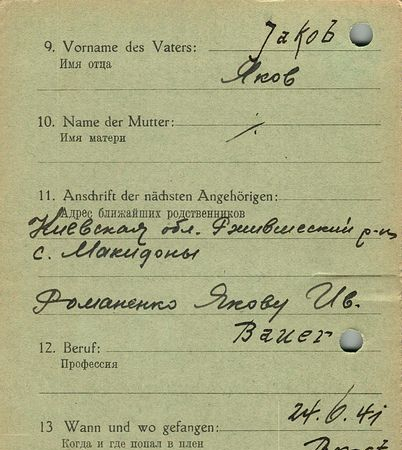 9. Vorname des Vaters: Jakob
Имя отца Яков
10. Name der Mutter: /.
Имя матери
11. Anschrift der nächsten Angehörigen:
Адрес ближайших родственников
Киевская обл. Ржищевский р-н
с. Македоны
Романенко Якову Ив.
12. Beruf: Bauer
Профессия
13 Wann und wo gefangen: 24.6.41
Когда и где попал в плен